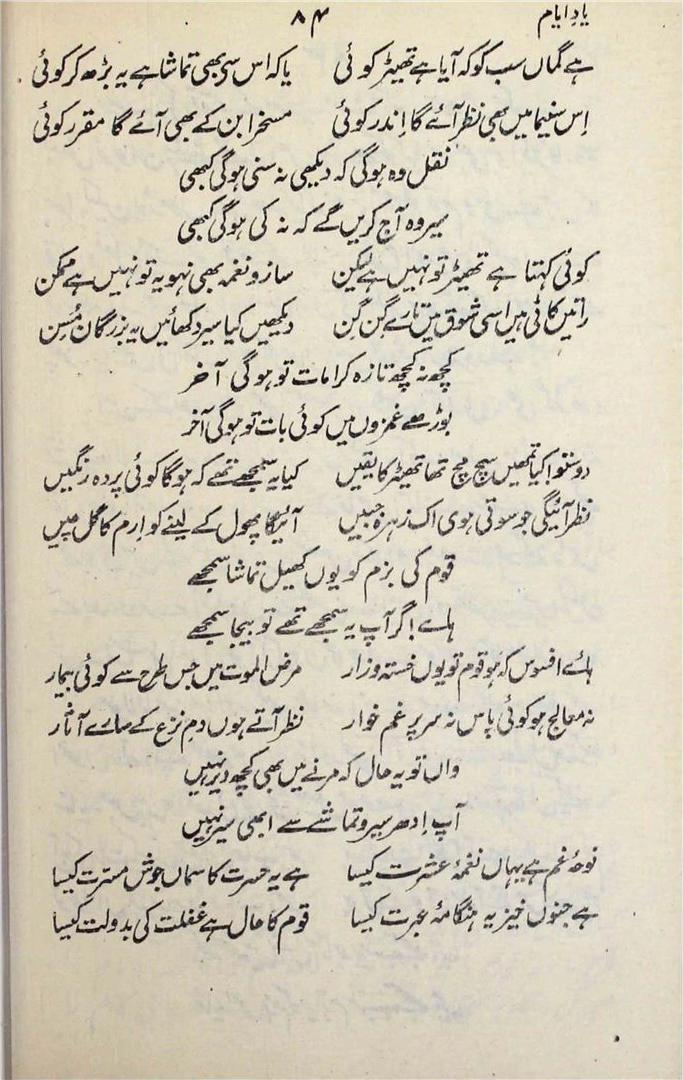 یادِ ایام ۸۴
ہے گماں سب کو کہ آیا ہے تھیٹر کوئی یا کہ اس سی بھی تماشا ہے یہ بڑھ کر کوئی
اِس سنیما میں بھی نظر آئے گا اِندر کوئی مسخرا بن کے بھی آئے گا مقرر کوئی
نقل وہ ہوگی کہ دیکھی نہ سنی ہوگی کبھی
سیر وہ آج کریں گے کہ نہ کی ہوگی کبھی
کوئی کہتا ہے تھیٹر تو نہیں ہے لیکن ساز و نغمہ بھی نہو یہ تو نہیں ہے ممکن
راتیں کاٹی ہیں اسی شوق میں تارے گِن گِن دیکھیں کیا سیر دکھائیں یہ بزرگان مُسِن
کچھ نہ کچھ تازہ کرامات تو ہوگی آخر
بوڑھے غمزوں میں کوئی بات تو ہوگی آخر
دوستو! کیا تمھیں سچ مچ تھا تھیٹر کا یقیں کیا یہ سمجھے تھے کہ ہوگا کوئی پردہ رنگیں
نظر آئیگی جو سوتی ہوی اک زہرہ جبیں آئیگا پھول کے لینے کو اِرم کا گل چیں
قوم کی بزم کو یوں کھیل تماشا سمجھے
ہاے! گر آپ یہ سمجھے تھے تو بیجا سمجھے
ہائے افسوس کہ ہو قوم تو یوں خستہ و زار مرض الموت میں جس طرح سے کوئی بیمار
نہ معالج ہو کوئی پاس نہ سر پر غم خوار نظر آتے ہوں دمِ نزع کے سارے آثار
واں تو یہ حال کہ مرنے میں بھی کچھ دیر نہیں
آپ اِدھر سیر و تماشے سے ابھی سیر نہیں
نوحۂ غم ہے یہاں نغمۂ عشرت کیسا ہے یہ حسرت کا سماں جوش مسرت کیسا
ہے جنوں خیز یہ ہنگامۂ عبرت کیسا قوم کا حال ہے غفلت کی بدولت کیسا